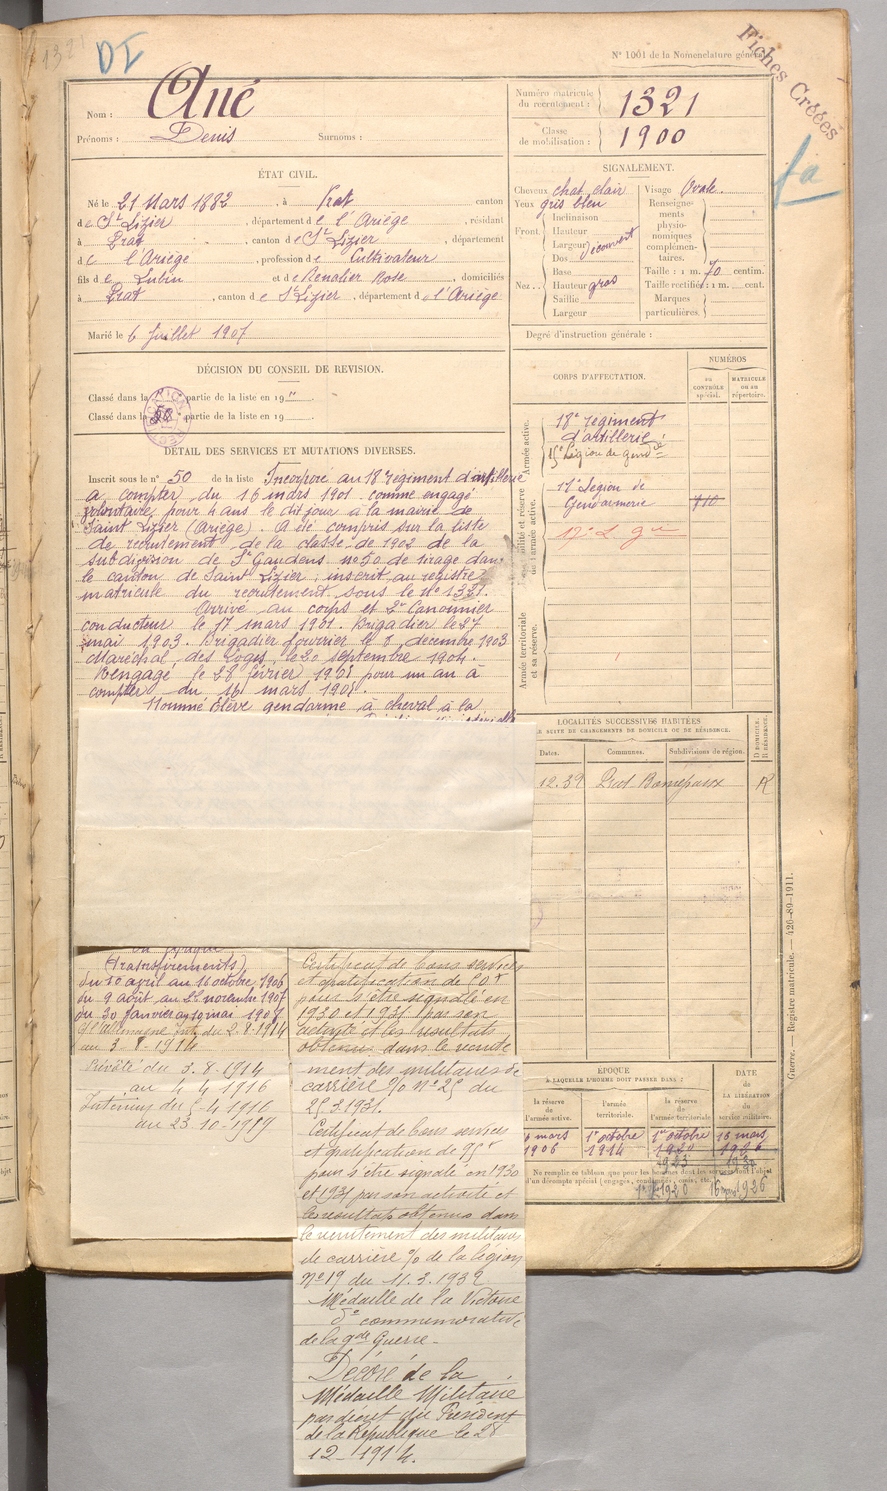 1321
DI
N° 1001 de la Nomenclature générale
Fiches Créées
fa
Nom : Ané
Prénoms : Denis Surnoms :
Numéro matricule du recrutement : 1321
Classe de mobilisation : 1900
ÉTAT CIVIL.
Né le 21 Mars 1882, à Prat canton
de St Lizier, département de l'Ariège, résidant
à Prat, canton de St Lizier, département
de l'Ariège, profession de Cultivateur
fils de Lubin et de Renalier Rose, domiciliés
à Prat, canton de St Lizier, département de l'Ariège
Marié le 6 juillet 1907
SIGNALEMENT.
Cheveux chat clair Visage Ovale.
Yeux gris bleu
Front. Inclinaison
Hauteur
Largeur Découvert
Nez. Dos
Base
Hauteur gros
Saillie
Largeur
Renseignements physionomiques complémentaires.
Taille : 1 m. 70 centim.
Taille rectifiée : 1 m. cent.
Marques particulières.
Degré d'instruction générale :
DÉCISION DU CONSEIL DE REVISION.
Classé dans la partie de la liste en 19 "
Classé dans la partie de la liste en 19
DÉTAIL DES SERVICES ET MUTATIONS DIVERSES.
Inscrit sous le n° 50 de la liste Incorporé au 18e régiment d'artillerie
à compter du 16 mars 1901 comme engagé
volontaire pour 4 ans le dit jour à la mairie de
Saint Lizier (Ariège). A été compris sur la liste
de recrutement de la classe de 1902 de la
subdivision de St Gaudens n° 50 de tirage dans
le canton de Saint Lizier, inscrit au registre
matricule du recrutement sous le n° 1321.
Arrivé au corps et 2e Canonnier
conducteur le 17 mars 1901. Brigadier le 27
mai 1903. Brigadier fourrier le 8 décembre 1903
Maréchal des Logis le 20 septembre 1904.
Rengagé le 28 février 1905 pour un an à
compter du 16 mars 1905.
Nommé élève gendarme à cheval à la
CORPS D'AFFECTATION.
NUMÉROS
au CONTRÔLE spécial.
MATRICULE ou au répertoire.
Armée active.
18e régiment
d'artillerie
15e Légion de Gendie
17e Légion de
Gendarmerie 710
17e L gie
Armée territoriale et sa réserve.
LOCALITÉS SUCCESSIVES HABITÉES
Dates. Communes. Subdivisions de région.
12.39 Prat Bonrepaux R
(transfèrements)
du 10 avril au 16 octobre 1906
du 9 août au 22 novembre 1907
du 30 janvier au 10 mai 1908
C/ l'Allemagne Int. du 2-8-1914
au 3-8-1914
Prévôté du 3.8.1914
au 4 4 1916
Intérieur du 5-4 1916
au 23-10-1919
Certificat de bons services
et gratification de
pour s'être signalé en
1930 et 1931 par son
activité et les résultats
obtenus dans le recrute
ment des militaires de
carrière % n° 25 du
25.3.1931.
Certificat de bons services
et gratification de
pour s'être signalé en 1930
et 1931 par son activité et
les resultats obtenus dans
le recrutement des militaires
de carrière % de la légion
N° 19 du 11.3.1932
Médaille de la Victoire
do commemorative
de la gde Guerre -
Décoré de la
Médaille Militaire
par décret du Président
de la République le 28
12-1914.
ÉPOQUE
À LAQUELLE L'HOMME DOIT PASSER DANS :
la réserve de l'armée active.
l'armée territoriale.
la réserve de l'armée territoriale.
DATE DE LA LIBÉRATION du service militaire.
mars 1er octobre 1er octobre 16 mars
1906 1914 1920 1926
Ne remplir ce tableau que pour les hommes dont les services font l'objet
d'un décompte spécial (engagés, condamnés, omis, etc.)
1920 16 mars 1926
Guerre. — Registre matricule. — 426-89-1911.